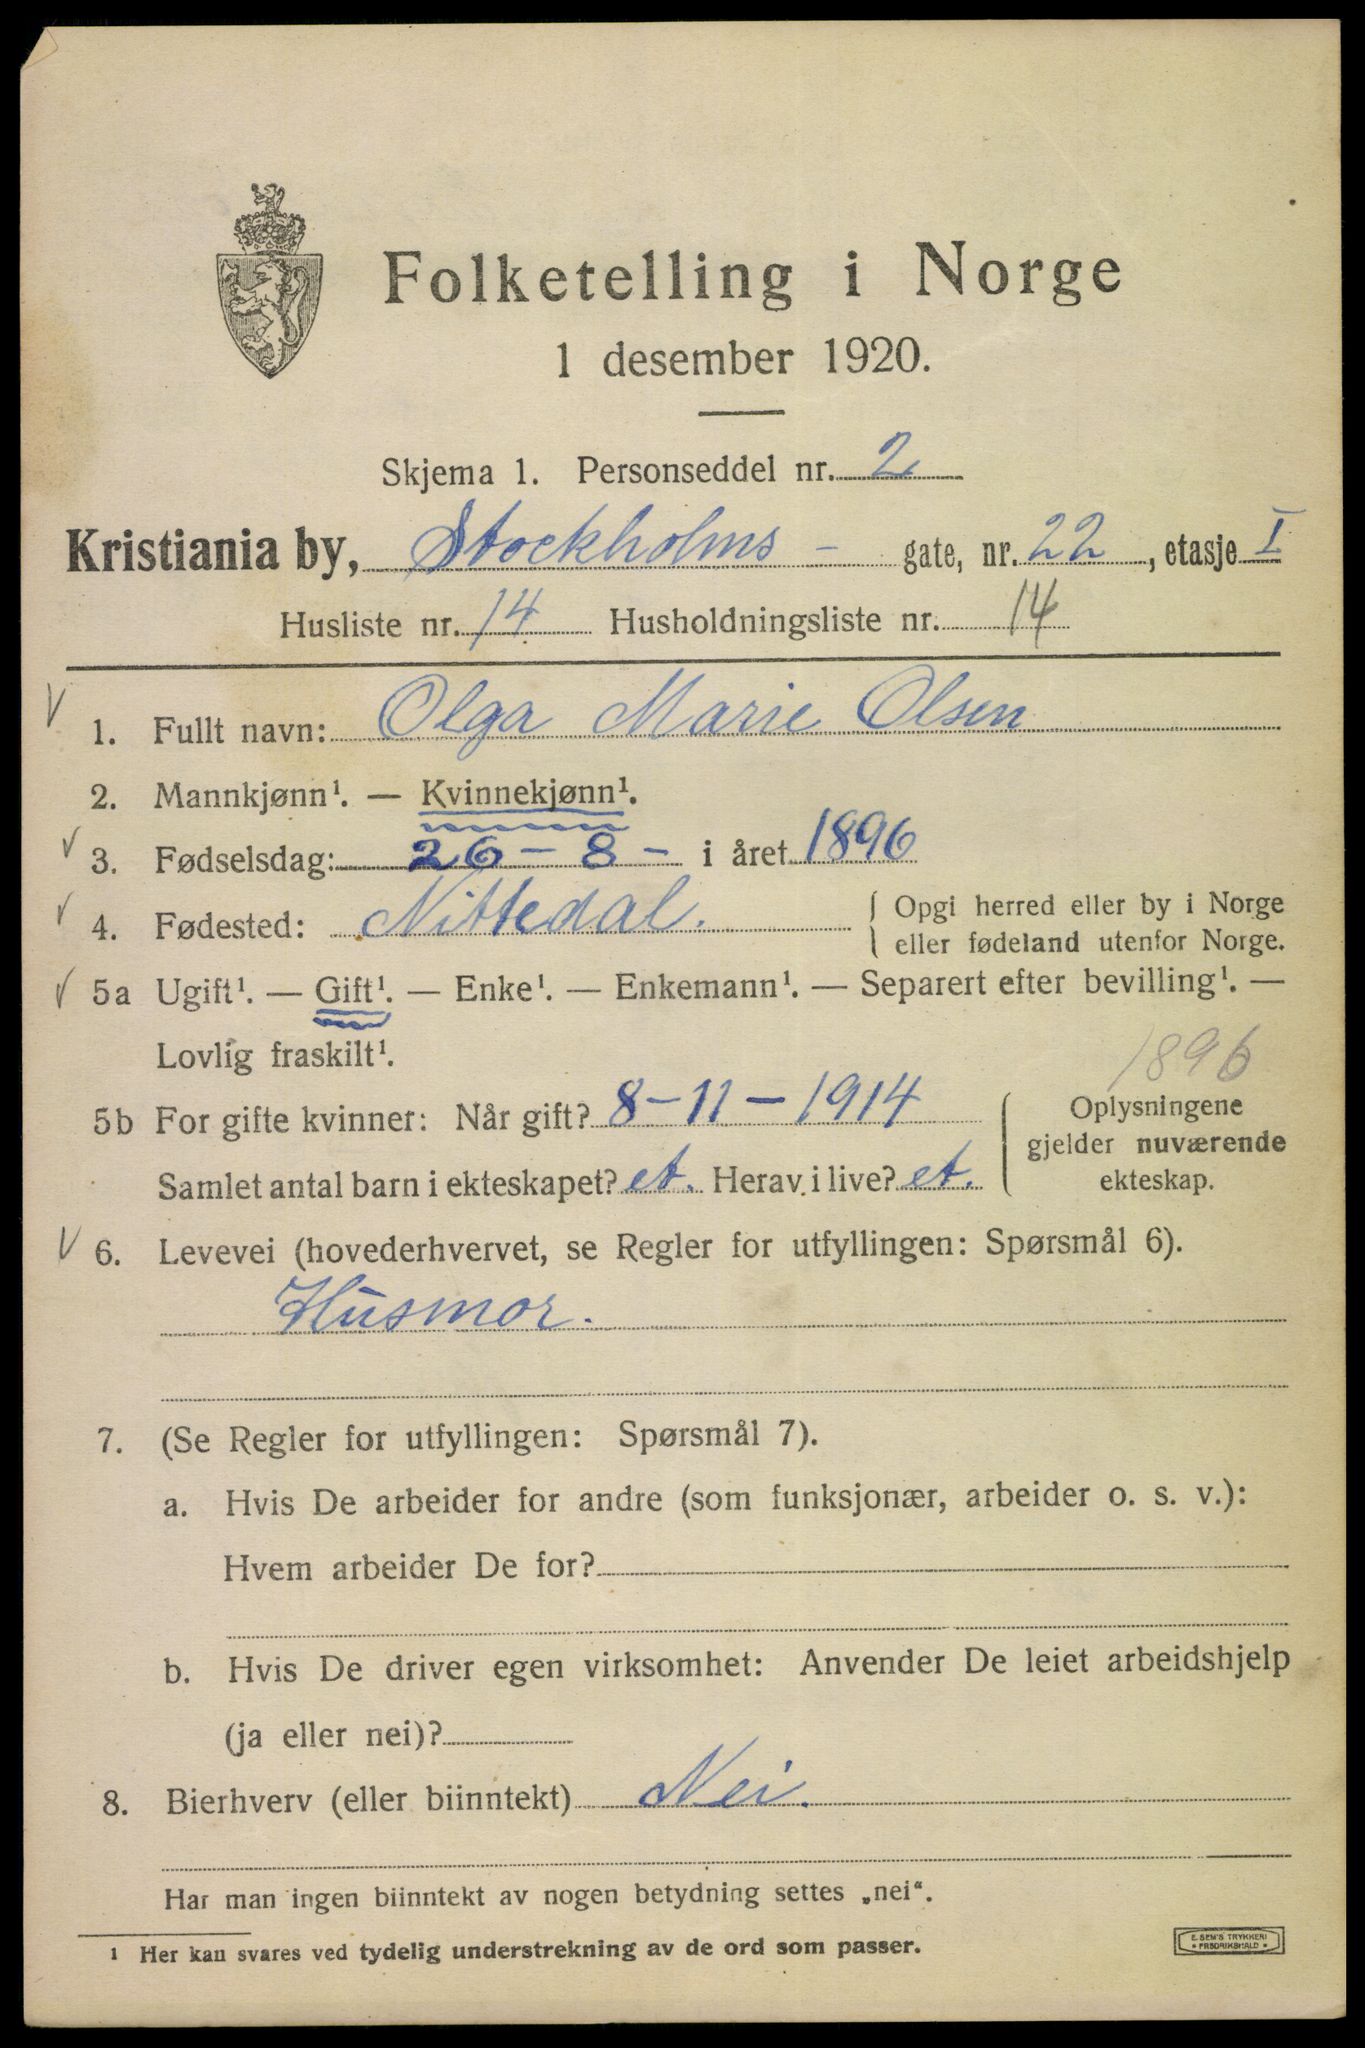 Folketelling i Norge
1 desember 1920.
Skjema 1. Personseddel nr. 2
Kristiania by, Stockholms - gate, nr. 22, etasje I
Husliste nr. 14 Husholdningsliste nr. 14
1. Fullt navn: Olga Marie Olsen
2. Mannkjønn¹. — Kvinnekjønn¹.
3. Fødselsdag: 26 - 8 - i året 1896
4. Fødested: Nittedal. Opgi herred eller by i Norge
eller fødeland utenfor Norge.
5a Ugift¹. — Gift¹. — Enke¹. — Enkemann¹. — Separert efter bevilling¹. —
Lovlig fraskilt¹.
1896
5b For gifte kvinner: Når gift? 8-11-1914 Oplysningene
gjelder nuværende
Samlet antal barn i ekteskapet? et. Herav i live? et. ekteskap.
6. Levevei (hovederhvervet, se Regler for utfyllingen: Spørsmål 6).
Husmor.
7. (Se Regler for utfyllingen: Spørsmål 7).
a. Hvis De arbeider for andre (som funksjonær, arbeider o. s. v.):
Hvem arbeider De for?
b. Hvis De driver egen virksomhet: Anvender De leiet arbeidshjelp
(ja eller nei)?
8. Bierhverv (eller biinntekt) Nei.
Har man ingen biinntekt av nogen betydning settes „nei“.
¹ Her kan svares ved tydelig understrekning av de ord som passer.
E. SEM'S TRYKKERI
• FREDRIKSHALD •